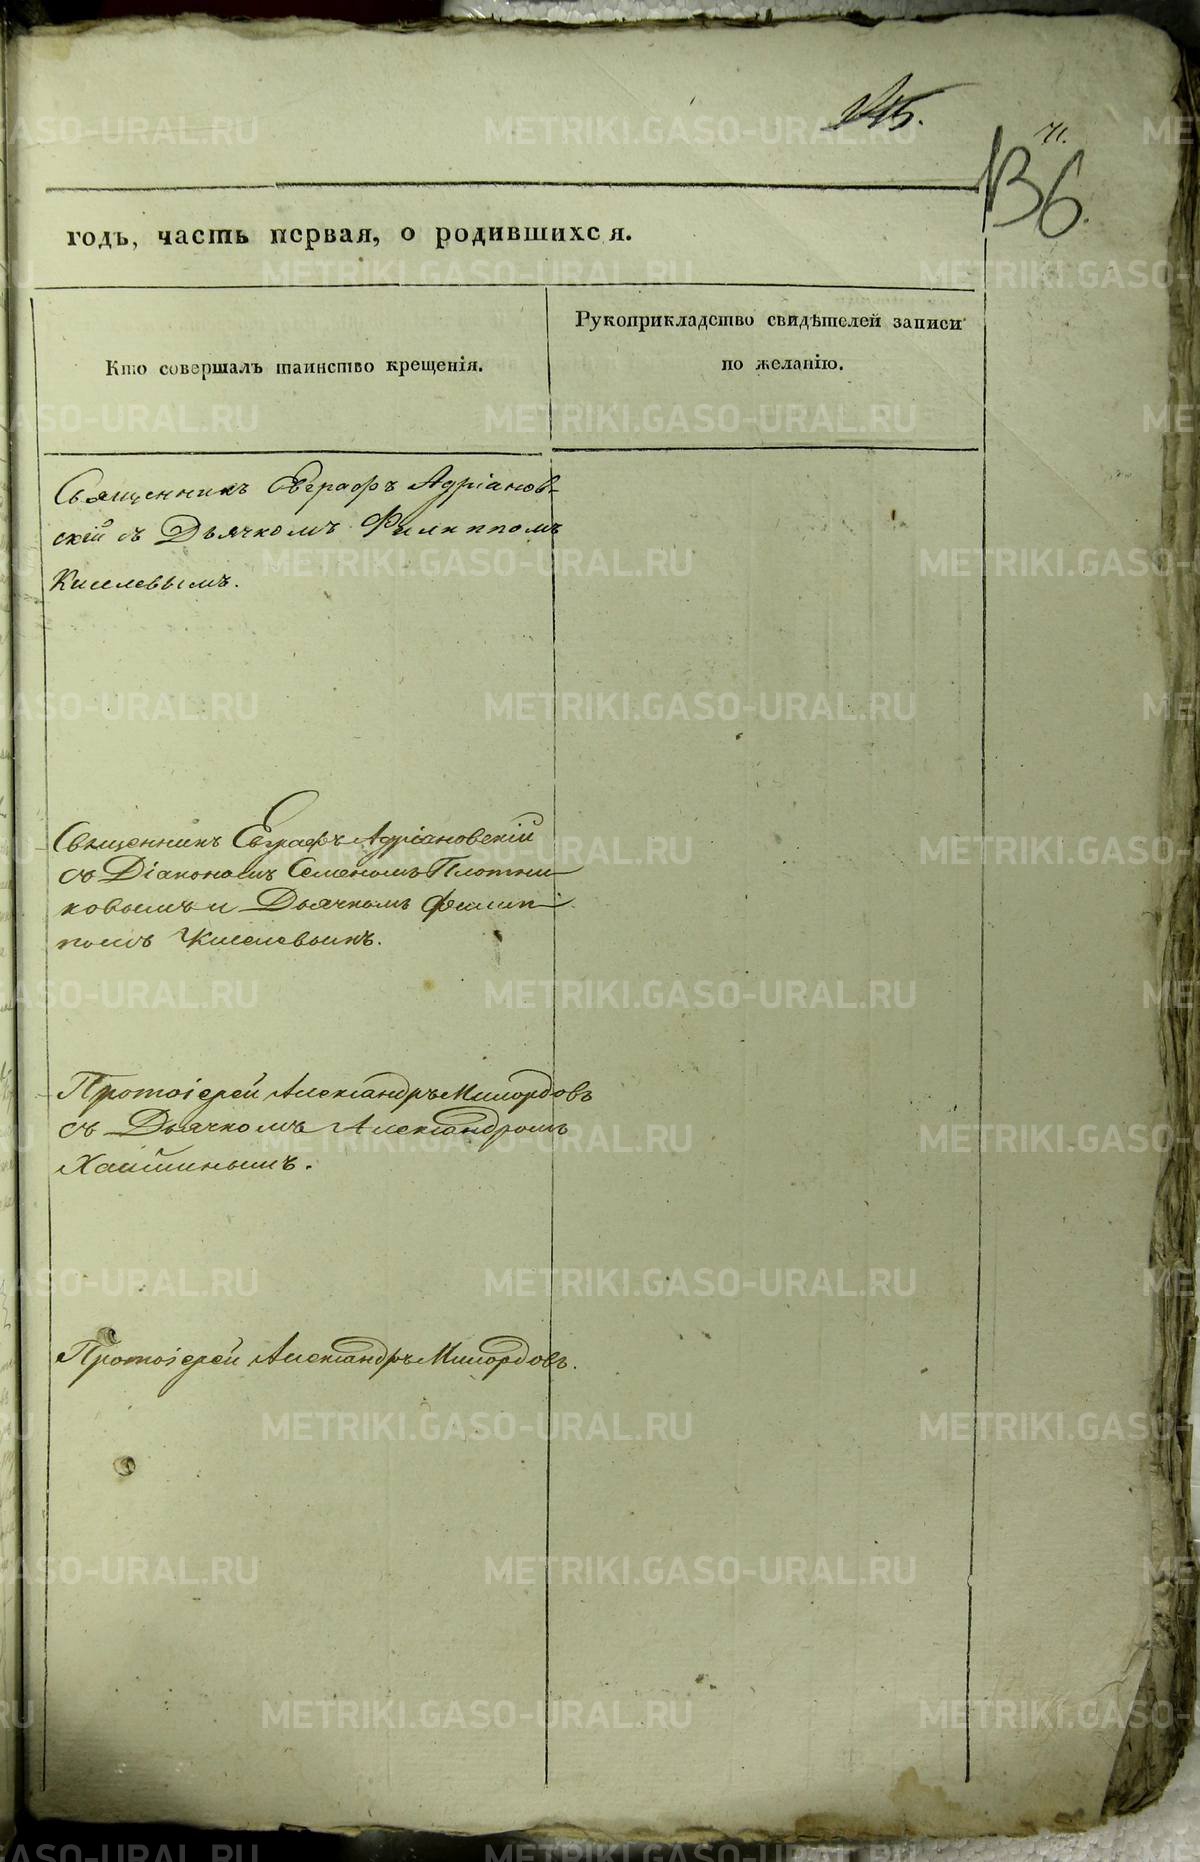 145.
71.
136.
годъ, часть первая, о родившихся.
Кто совершалъ таинство крещенія.
Рукоприкладство свидѣтелей записи
по желанію.
Священникъ Евграфъ Адріанов-
скій съ Дьячкомъ Филиппомъ
Киселевымъ.
Священникъ Евграфъ Адріановскій
съ Діакономъ Семеномъ Плотни-
ковымъ и Дьячкомъ Филип-
помъ Киселевымъ.
Протоіерей Александръ Милордовъ
съ Дьячкомъ Александромъ
Протоіерей Александръ Милордовъ.
METRIKI.GASO-URAL.RU